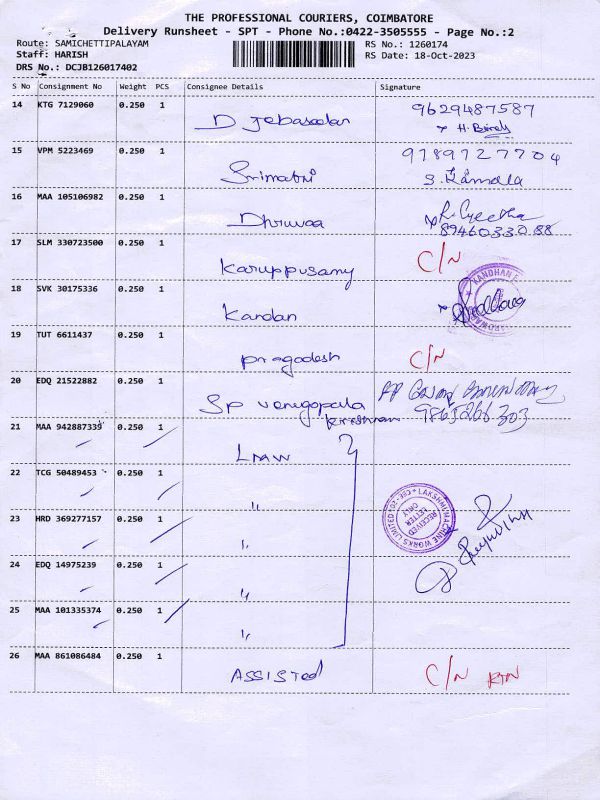 THE PROFESSIONAL COURIERS, COIMBATORE
Delivery Runsheet - SPT - Phone No.:0422-3505555 - Page No.:2
Route: SAMICHETTIPALAYAM
Staff: HARISH
DRS No.: DCJB126017402
RS No.: 1260174
RS Date: 18-Oct-2023
S No Consignment No Weight PCS Consignee Details Signature
14 KTG 7129060 0.250 1
D Jebaseelan 9629487587
15 VPM 5223469 0.250 1
Srimathi 9789727704
S. Kamala
16 MAA 105106982 0.250 1
Dhruvaa R. Geetha
8946033088
17 SLM 330723500 0.250 1
Karuppusamy C/N
18 SVK 30175336 0.250 1
Kandan
KANDHAN
19 TUT 6611437 0.250 1
Pragadesh C/N
20 EDQ 21522882 0.250 1
SP Venugopala
krishnan 9865266303
21 MAA 942887339 0.250 1
LMW
22 TCG 50489453 0.250 1
"
23 HRD 369277157 0.250 1
"
24 EDQ 14975239 0.250 1
"
25 MAA 101335374 0.250 1
"
LAKSHMI MACHINE WORKS LIMITED
RECEIVED
LETTER
ONLY
26 MAA 861086484 0.250 1
ASSISTED C/N RTN